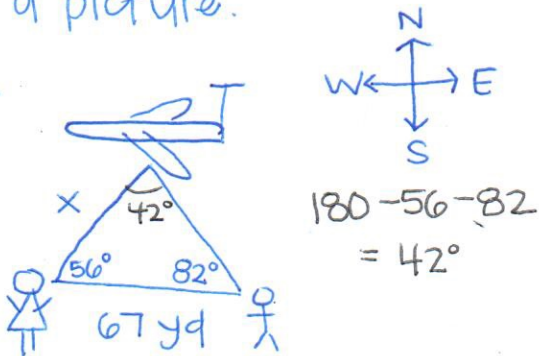 a picture.
N
W E
S
x
42°
56° 82°
67 yd
180-56-82
= 42°